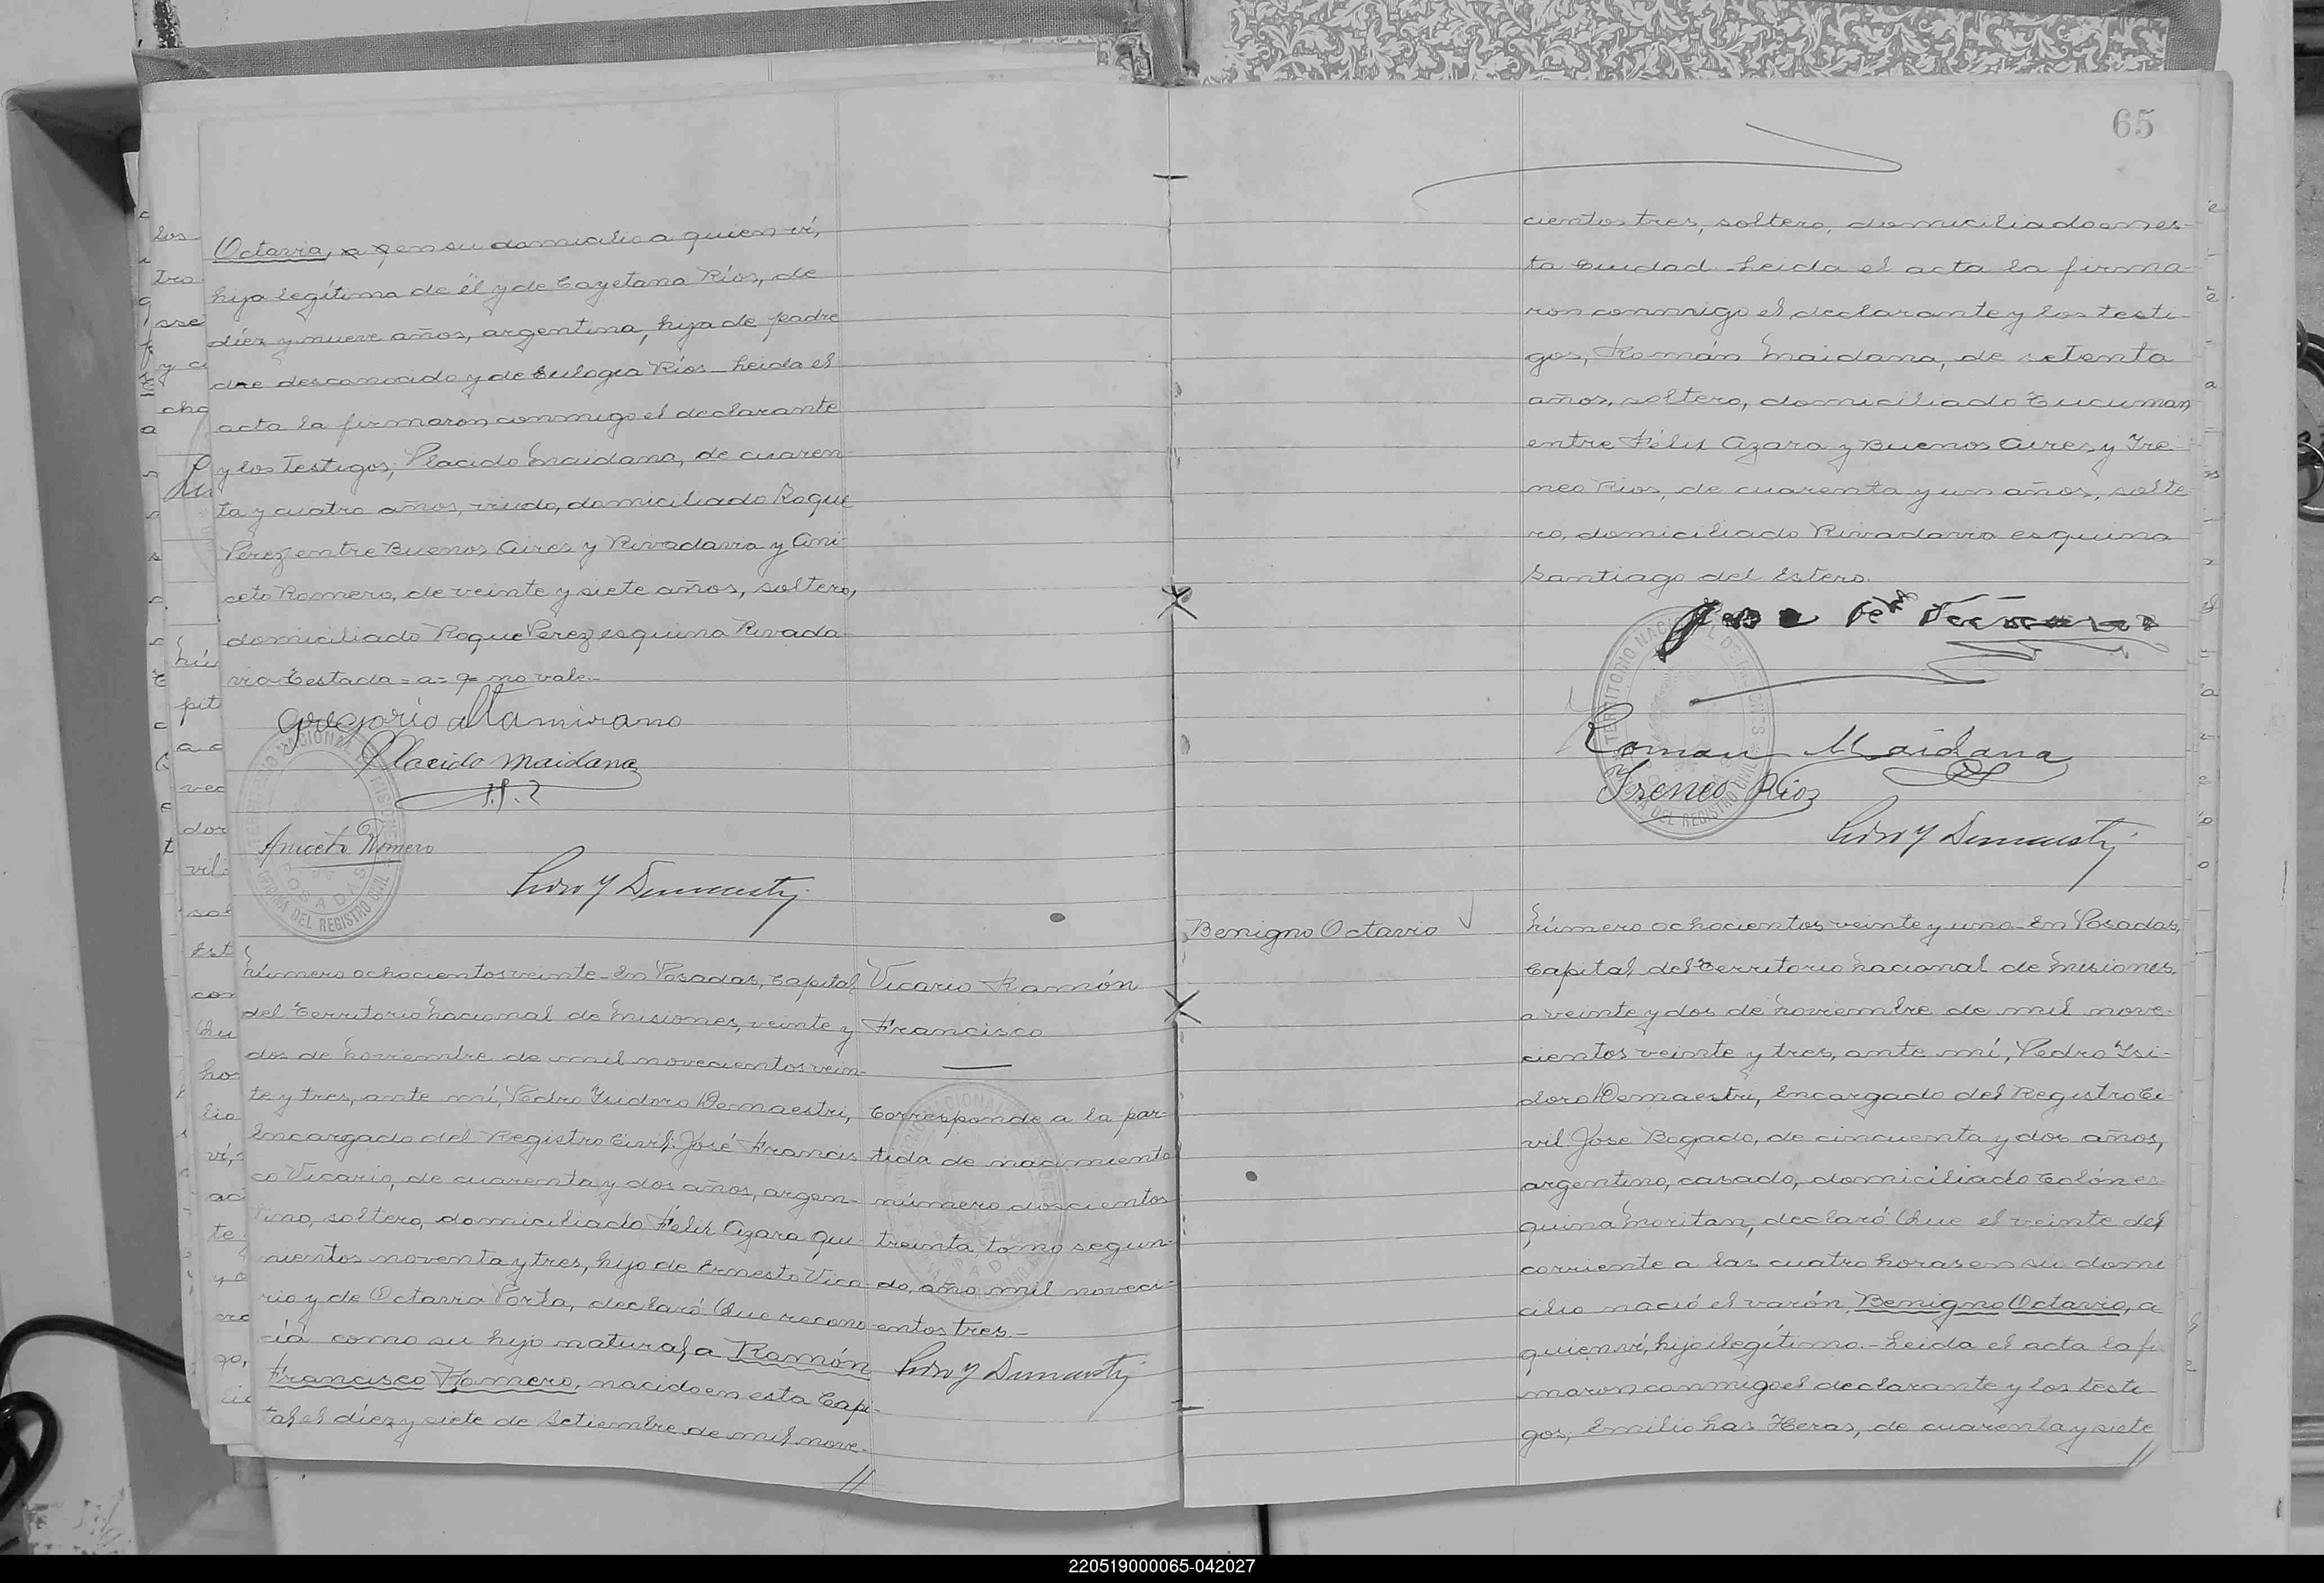 Octavia, a q en su domicilio a quien ví,
hija legítima de él y de Cayetana Ríos, de
diez y nueve años, argentina, hija de padre
dre desconocido y de Eulogia Ríos. Leida el
acta la firmaron conmigo el declarante
y los testigos; Placido Maidana, de cuaren-
ta y cuatro años, viudo, domiciliado Roque
Perez entre Buenos Aires y Rivadavia y Ani-
ceto Romero, de veinte y siete años, soltero,
domiciliado Roque Perez esquina Rivada-
via Testado = a = q = no vale.-
Gregorio Altamirano
Placido Maidana
Aniceto Romero
Pedro Y Demaestri
Número ochocientos veinte - En Posadas, Capital
del Territorio Nacional de Misiones, veinte y
dos de Noviembre de mil novecientos vein-
te y tres, ante mí, Pedro Isidoro Demaestri,
Encargado del Registro Civil: José Francis
co Vicario, de cuarenta y dos años, argen-
tino, soltero, domiciliado Félix Azara qui-
nientos noventa y tres, hijo de Ernesto Vica-
rio y de Octavia Porta, declaró: Que recono-
cía como su hijo natural, a Ramón
Francisco Romero, nacido en esta Capi-
tal el diez y siete de Setiembre de mil nove-
//
Vicario Ramón
Francisco
Corresponde a la par-
tida de nacimiento
número doscientos
treinta, tomo segun-
do, año mil noveci-
entos tres.-
Pedro Y Demaestri
65
cientos tres, soltero, domiciliado en es-
ta Ciudad. Leida el acta la firma-
ron conmigo el declarante y los testi-
gos, Román Maidana, de setenta
años, soltero, domiciliado Tucuman
entre Félix Azara y Buenos Aires y Ire-
neo Rios, de cuarenta y un años, solte-
ro, domiciliado Rivadavia esquina
Santiago del Estero.
Roman Maidana
Ireneo Rios
Pedro Y Demaestri
Benigno Octavio
Número ochocientos veinte y uno - En Posadas,
Capital del Territorio Nacional de Misiones,
a veinte y dos de Noviembre de mil nove-
cientos veinte y tres, ante mí, Pedro Isi-
doro Demaestri, Encargado del Registro Ci-
vil. Jose Bogado, de cincuenta y dos años,
argentino, casado, domiciliado Colón es-
quina Moritan, declaró: Que el veinte del
corriente a las cuatro horas en su domi
cilio nació el varón, Benigno Octavio, a
quien ví, hijo ilegítimo.- Leida el acta la fir
maron conmigo el declarante y los testi-
gos; Emilio Las Heras, de cuarenta y siete
//
220519000065-042027